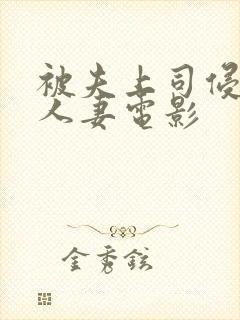 被夫上司侵
人妻电影
金秀铉